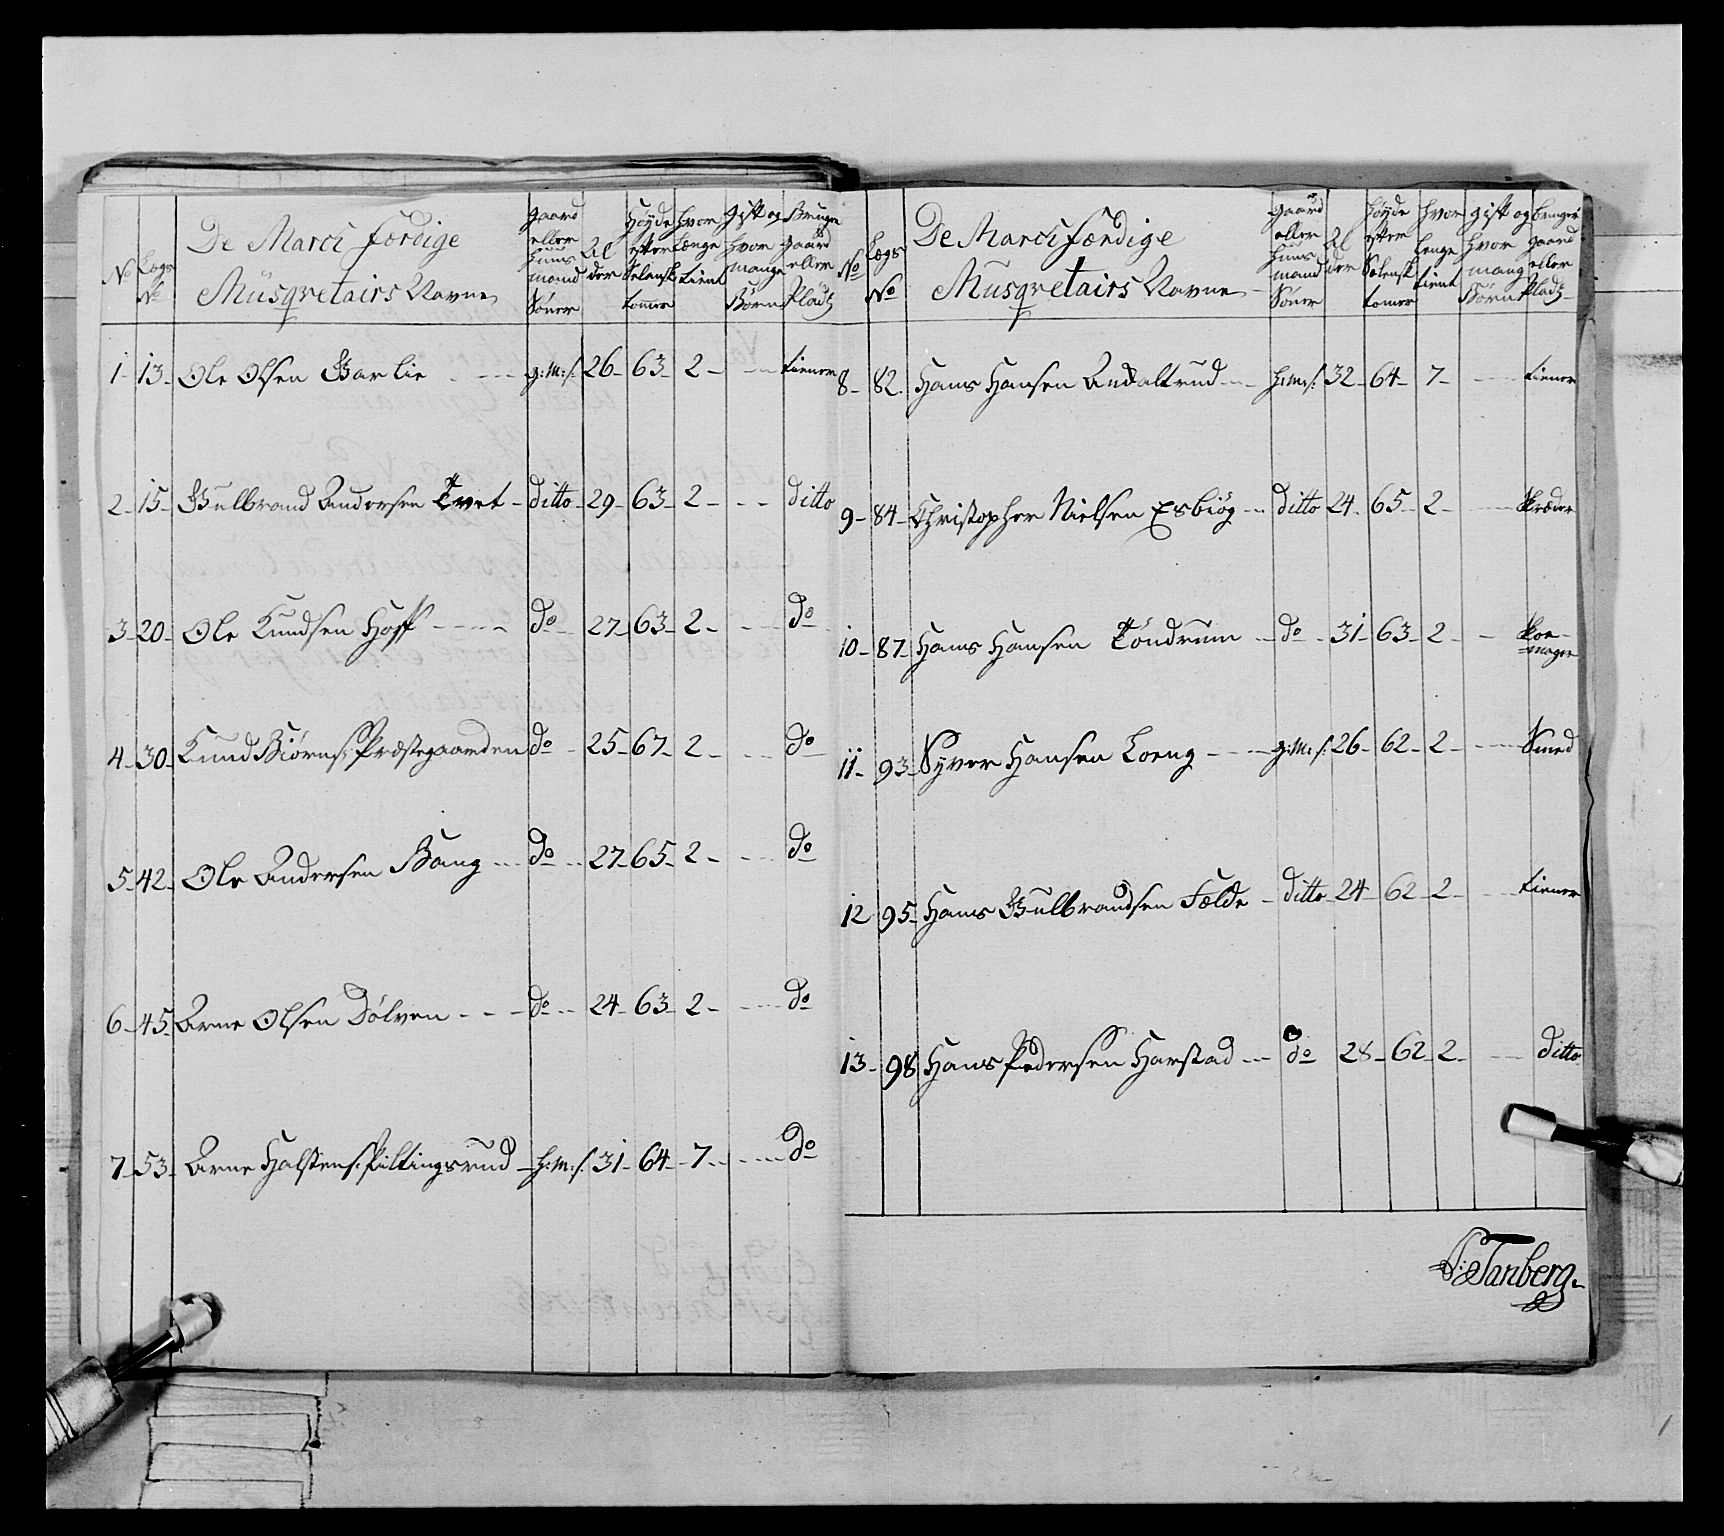 De March færdige
Musqvetairs Navne
No
Lægs No
gaard eller huus mand Söner
Al der
Høyde efter Selensk tommer
hvor længe tient
gift og hvor mange Börn
Bruge gaard eller Pladz
1 - 13 - Ole Olsen Garlie - - - g:M:s: 26 - 63 - 2 - - - tiener
2 - 15 - Gulbrand Andersen Tvet - ditto - 29 - 63 - 2 - - - ditto
3 - 20 - Ole Knudsen Hoff - - - - do - 27 - 63 - 2 - - - do
4 - 30 - Knud Biörns: Præstegaarden do - 25 - 67 - 2 - - - do
5 - 42 - Ole Andersen Bang - - do - - 27 - 65 - 2 - - - do
6 - 45 Arne Olsen Dölven - - - do - - 24 - 63 - 2 - - - do
7 - 53 - Arne Halstens: Piltingsrud - h:M:s: 31 - 64 - 7 - - - do
De March færdige
Musqvetairs Navne -
No
Lægs No
gaard eller huus mand Söner
Al der
høyde efter Sælensk tomer
hvor lenge tient
gift og hvor mang Börn
bruger gaard eller Pladz
8 - 82. Hans Hansen - - - h:M:s: 32 - 64 - 7 - - - tiener
9 - 84 - Christopher Nielsen Esbiög - - ditto 24 - 65 - 2 - - - Skræder
10 - 87 - Hans Hansen Töndrum - - do - 31 - 63 - 2 - - Skoe-
mager
11 - 93 - Syver Hansen Loeng - - - g:M:s: 26 - 62 - 2 - - - Smed
12 95 - Hans Gulbrandsen Fælde - ditto - 24 - 62 - 2 - - - tiener
13 - 98 Hans Pedersen Harstad - - do 28 - 62 - 2 - - - ditto
Tanberg